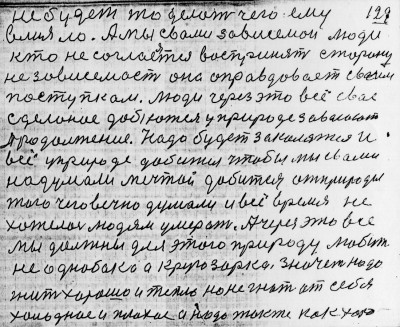 не будет то делат чего ему 129
влияло. А мы с вами зависемой люди
кто не соглается воспринят сторону
не зависемаст она оправдовает своим
поступкам. Люди через это всё свае
сделоное добюжся у природе завасают
продолжение. Надо будет закалятся и
всё у природе добится чтобы мы с вами
надумали мечтой добится от природы
того чего вечно думали и всё время не
хотелос людям умерат. А через это всё
мы должны для этого природу любит
не однобако а кругозарка. Значет надо
жит хорошо и тепло но не гнат от себя
холодное и плохое а надо так те как хоро